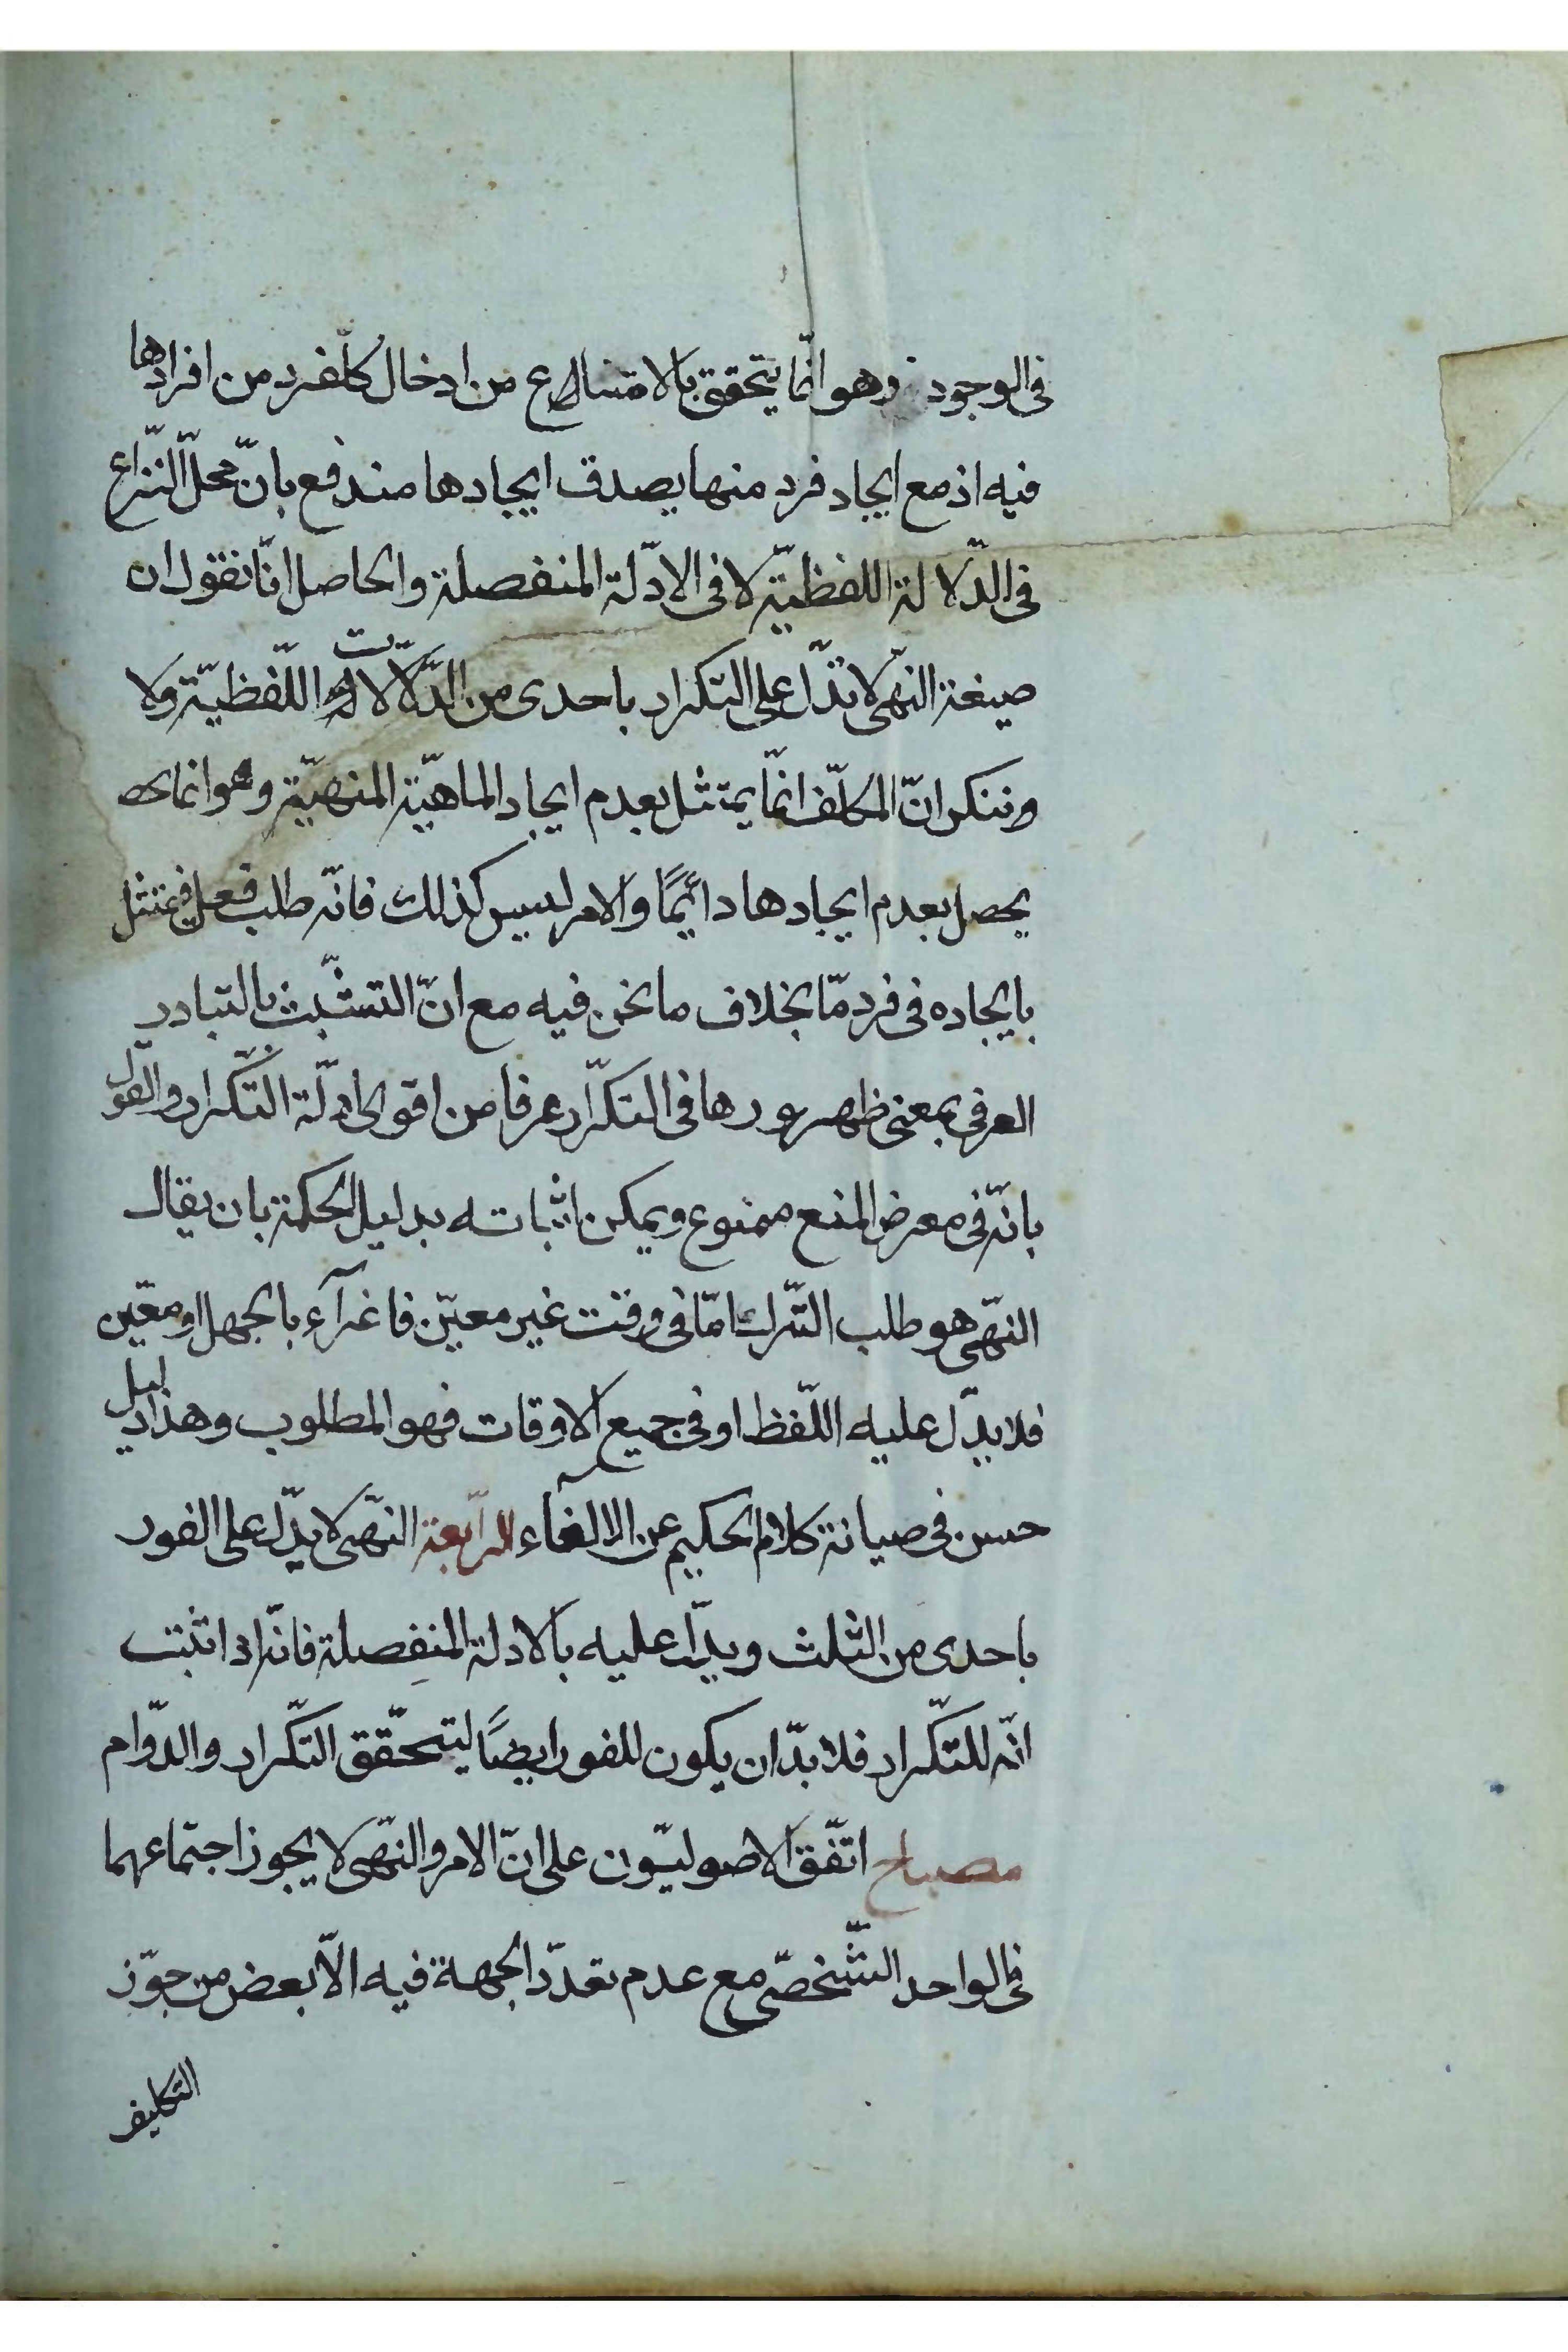 فى الوجود وهو انّما يتحقق بالامتناع من ادخال كلّ فرد من افرادها
فيه اذ مع ايجاد فرد منها يصدق ايجادها مندفع بانّ محلّ النّزاع
فى الدّلالة اللفظيّة لا فى الادّلة المنفصلة والحاصل انّا نقول ان
صيغة النّهى لا تدّل على التكرار باحدى من الدّلالات اللّفظيّة ولا
وننكر انّ المكلّف انّما يمتثل بعدم ايجاد الماهيّة المنهيّة وهو انما
يحصل بعدم ايجادها دائيمًا والامر ليس كذلك فانّه طلب فعل فيمتثل
بايجاده فى فرد مّا بخلاف ما نحن فيه مع انّ التشّبث بالتبادر
العرفى بمعنى ظهورها فى التكرّار عرفا من اقوى ادلّة التّكرار والقول
بانّه فى معرض المنع ممنوع ويمكن اثباته بدليل الحكمة بان يقال
النهّى هو طلب التّرك امّا فى وقت غير معيّن فاغرآء بالجهل او معيّن
فلا يدّل عليه اللّفظ او فى جميع الاوقات فهو المطلوب وهذا دليل
حسن فى صيانة كلام الحكيم عن الالغآء الرّابعة النهّى لا يدّل على الفور
باحدى من الثلث ويدّل عليه بالادلة المنفصلة فانّه اذا ثبت
انّه للتكّرار فلا بدّ ان يكون للفور ايضًا ليتحقّق التكّرار والدّوام
مصباح اتّفق الاصوليّون على انّ الامر والنهّى لا يجوز اجتماعهما
فى الواحد الشّخصّى مع عدم تعدّد الجهة فيه الاّ بعض من جوّز
التكليف